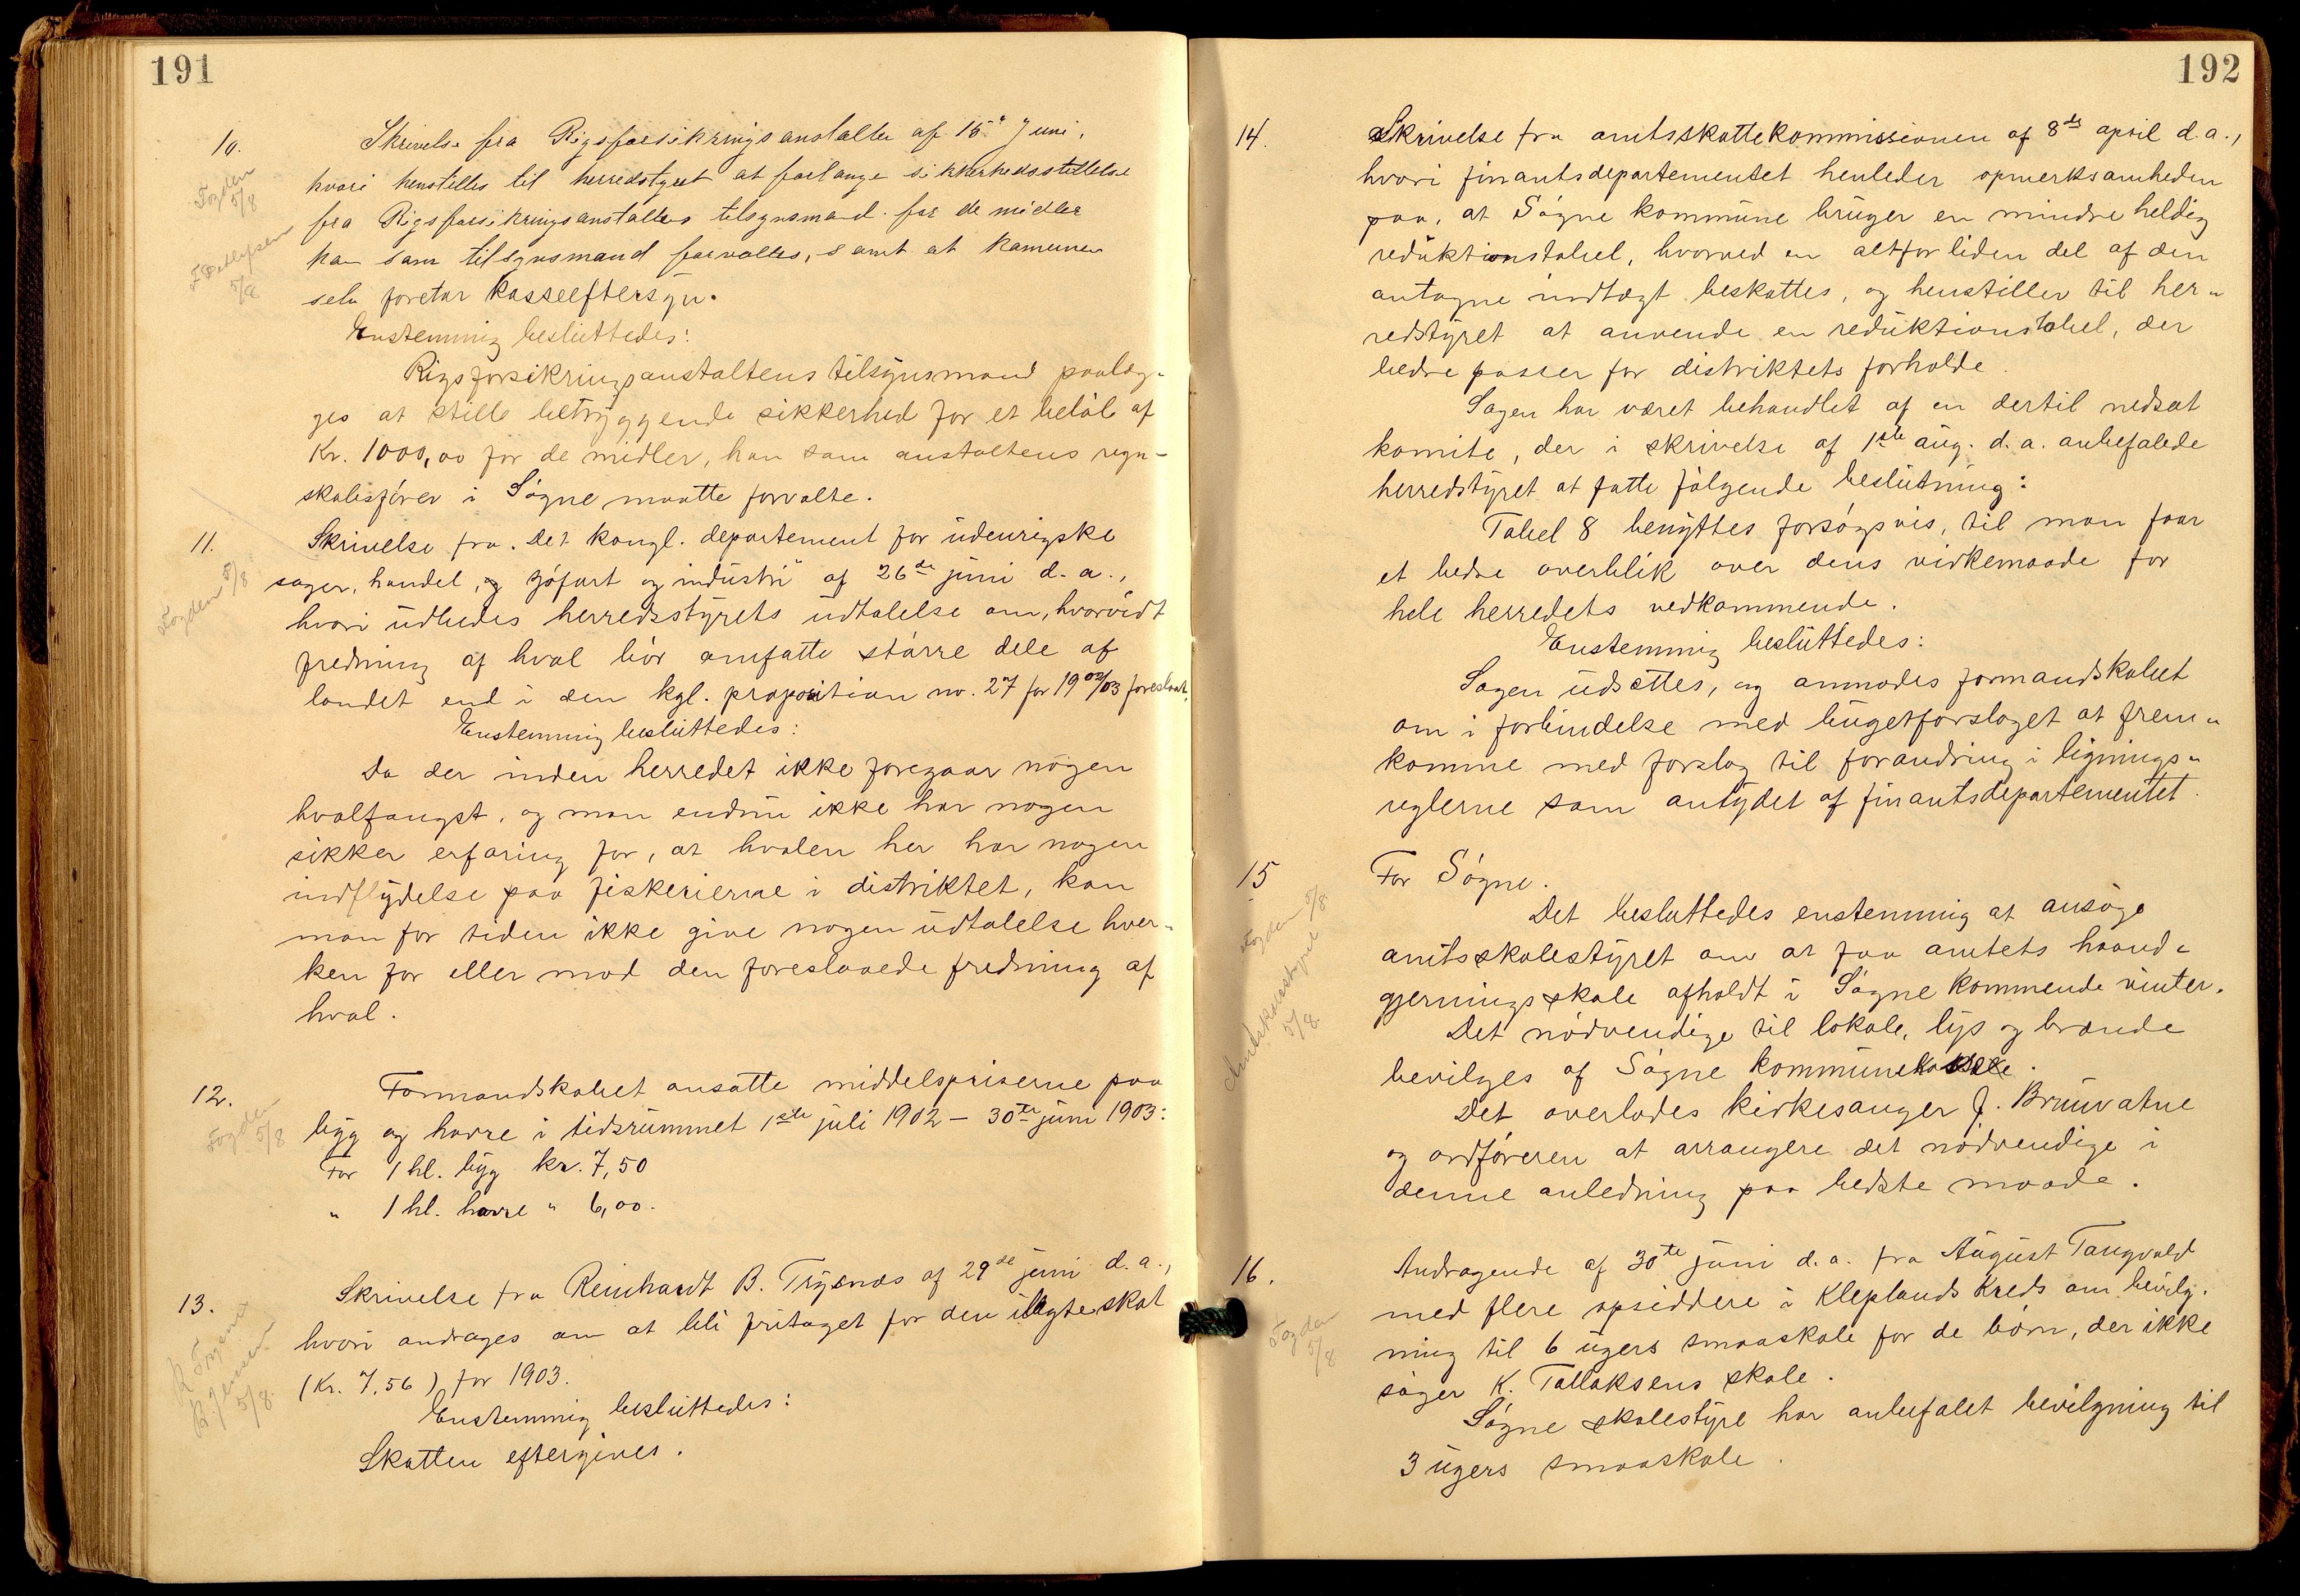 191
10.
Fogden
5/8
5/8
Skrivelse fra Rigsforsikringsanstalten af 15de Juni,
hvori henstilles til herredstyret at forlange sikkerhedsstillelse
fra Rigsforsikringsanstaltens tilsynsmand for de midler
han som tilsynsmand forvalter, samt at kommunen
selv foretar kasseeftersyn.
Enstemmig besluttedes:
Rigsforsikringsanstaltens tilsynsmand paalæg-
ges at stille betryggende sikkerhed for et beløb af
Kr. 1000,00 for de midler, han som anstaltens regn-
skabsfører i Søgne maatte forvalte.
11.
Fogden 5/8
Skrivelse fra "Det kongl. departement for udenrigske
sager, handel, og sjøfart og industri" af 26de juni d.a.,
hvori udbedes herredsstyrets udtalelse om, hvorvidt
fredning af hval bør omfatte større dele af
landet end i den kgl. proposition no. 27 for 1902/03 foreslaat.
Enstemmig besluttedes:
Da der inden herredet ikke foregaar nogen
hvalfangst, og man endnu ikke har nogen
sikker erfaring for, at hvalen her har nogen
indflydelse paa fiskerierne i distriktet, kan
man for tiden ikke give nogen udtalelse hver-
ken for eller mod den foreslaaede fredning af
hval.
12.
Fogden
5/8
Formandskabet ansatte middelspriserne paa
byg og havre i tidsrummet 1ste juli 1902 - 30te juni 1903:
For 1 hl. byg kr. 7,50
" 1 hl. havre " 6,00.
13.
R Trysnes
B. Jensen
5/8.
Skrivelse fra Reinhardt B. Trysnæs af 29de juni d.a.,
hvori andrages om at bli fritaget for den ilagte skat
(Kr. 7,56) for 1903.
Enstemmig besluttedes:
Skatten eftergives.
192
14.
Skrivelse fra amtsskattekommissionen af 8de april d.a.,
hvori finantsdepartementet henleder opmerksamheden
paa, at Søgne kommune bruger en mindre heldig
reduktionstabel, hvorved en altfor liden del af den
antagne indtægt beskattes, og henstiller til her-
redstyret at anvende en reduktionstabel, der
bedre passer for distriktets forholde.
Sagen har været behandlet af en dertil nedsat
komite, der i skrivelse af 1ste aug. d.a. anbefalede
herredstyret at fatte følgende beslutning:
Tabel 8 benyttes forsøgsvis, til man faar
et bedre overblik over dens virkemaade for
hele herredets vedkommende.
Enstemmig besluttedes:
Sagen udsættes, og anmodes formandskabet
om i forbindelse med bugetforslaget at frem-
komme med forslag til forandring i lignings-
reglerne som antydet af finantsdepartementet.
15
Fogden 5/8.
Amtsskolestyret
5/8.
For Søgne.
Det besluttedes enstemmig at ansøge
amtsskolestyret om at faa amtets haand-
gjerningsskole afholdt i Søgne kommende vinter.
Det nødvendige til lokale, lys og brænde
bevilges af Søgne kommunekasse.
Det overlodes kirkesanger J. Brunvatne
og ordføreren at arrangere det nødvendige i
denne anledning paa bedste maade.
16.
Fogden
5/8
Andragende af 30te juni d.a. fra August Tangvald
med flere opsiddere i Kleplands Kreds om bevilg-
ning til 6 ugers smaaskole for de børn, der ikke
søger K. Tallaksens skole.
Søgne skolestyre har anbefalet bevilgning til
3 ugers smaaskole.